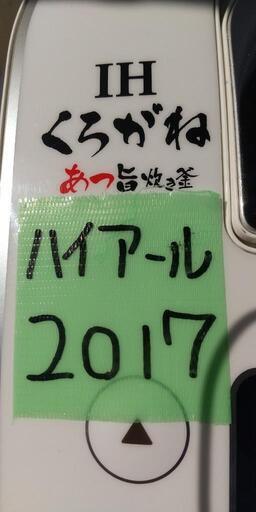 IH
くろがね
あつ旨炊き釜
ハイアール
2017